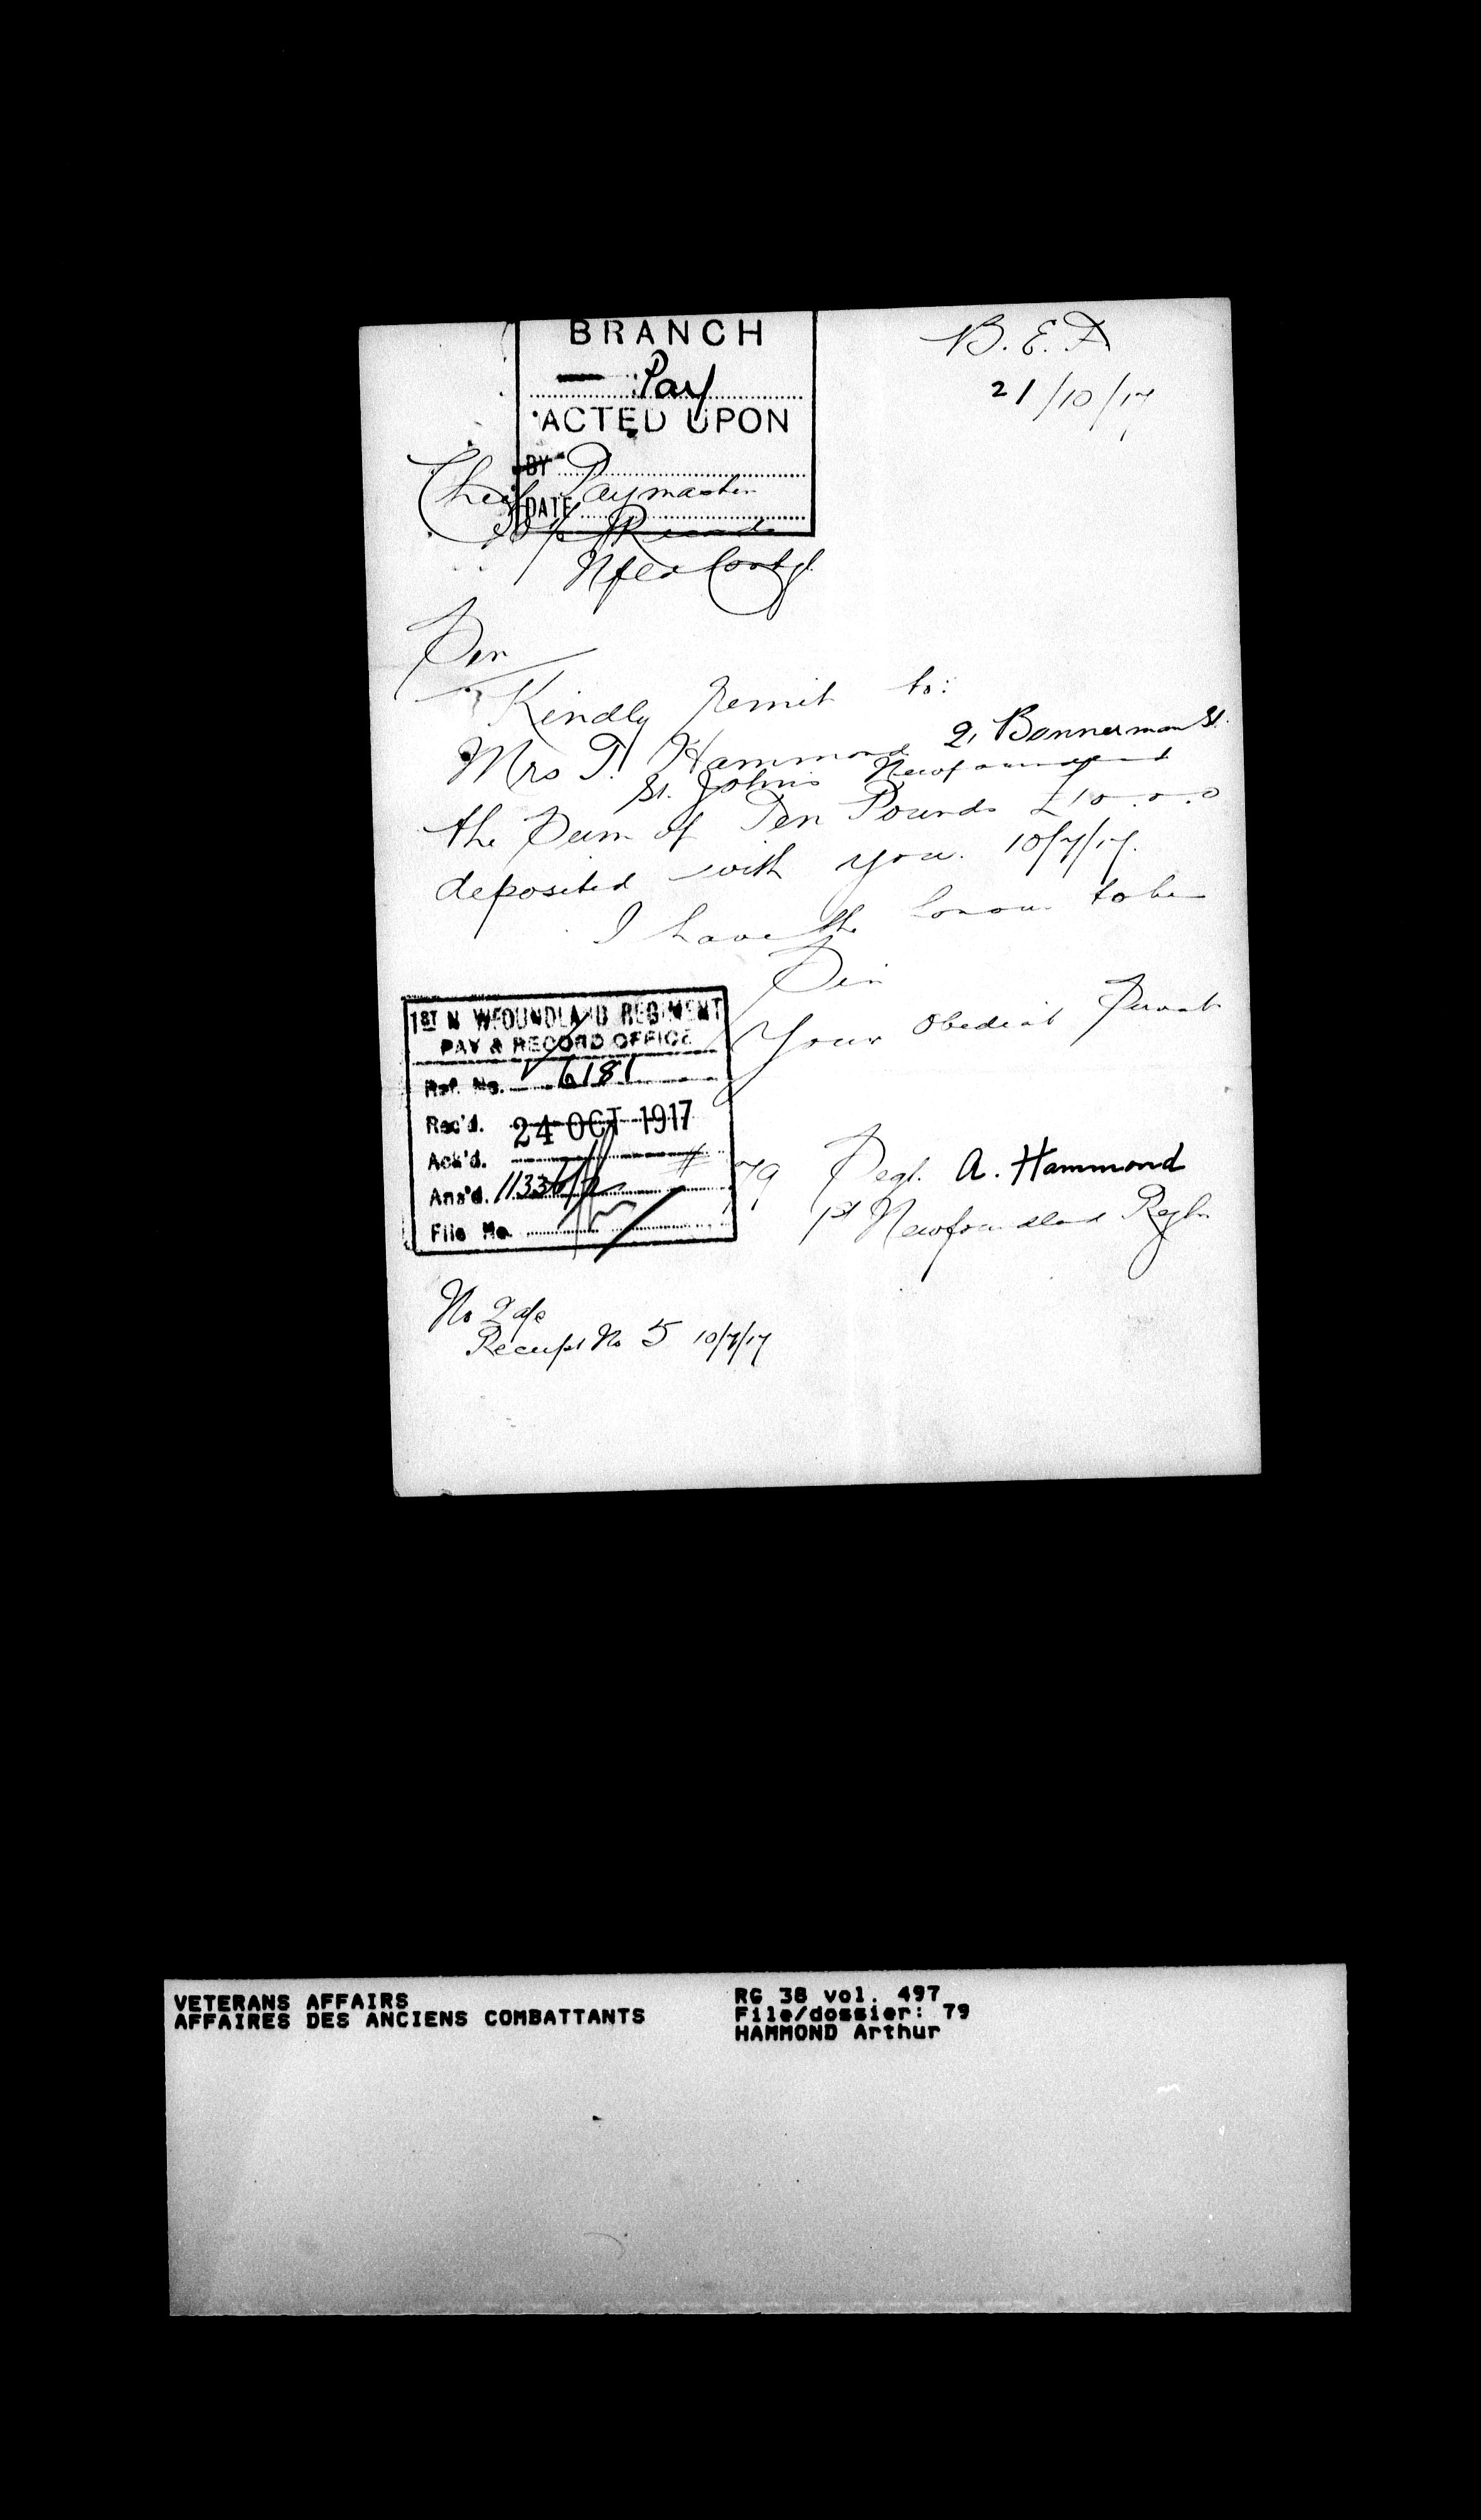 BRANCH
Pay
ACTED UPON
BY
DATE
B. E. F
21/10/17
Chief Paymaster
Nfld Contgt.
Sir
Kindly remit to:
Mrs T. Hammond 2, Bannerman St.
St. Johns Newfoundland
the Sum of Ten Pounds £10.0.0
deposited with you. 10/7/17.
I have the honour to be
Sir
Your Obedient Servant
79 Segt. A. Hammond
1st Newfoundland Regt.
1ST N WFOUNDLAND REGIMENT
PAY & RECORD OFFICE
Ref. No. 6181
Rec'd. 24 OCT 1917
Ack'd.
Ans'd. 11336/2
File No.
Receipt No 5 10/7/17
VETERANS AFFAIRS
AFFAIRES DES ANCIENS COMBATTANTS
RG 38 vol. 497
File/dossier: 79
HAMMOND Arthur